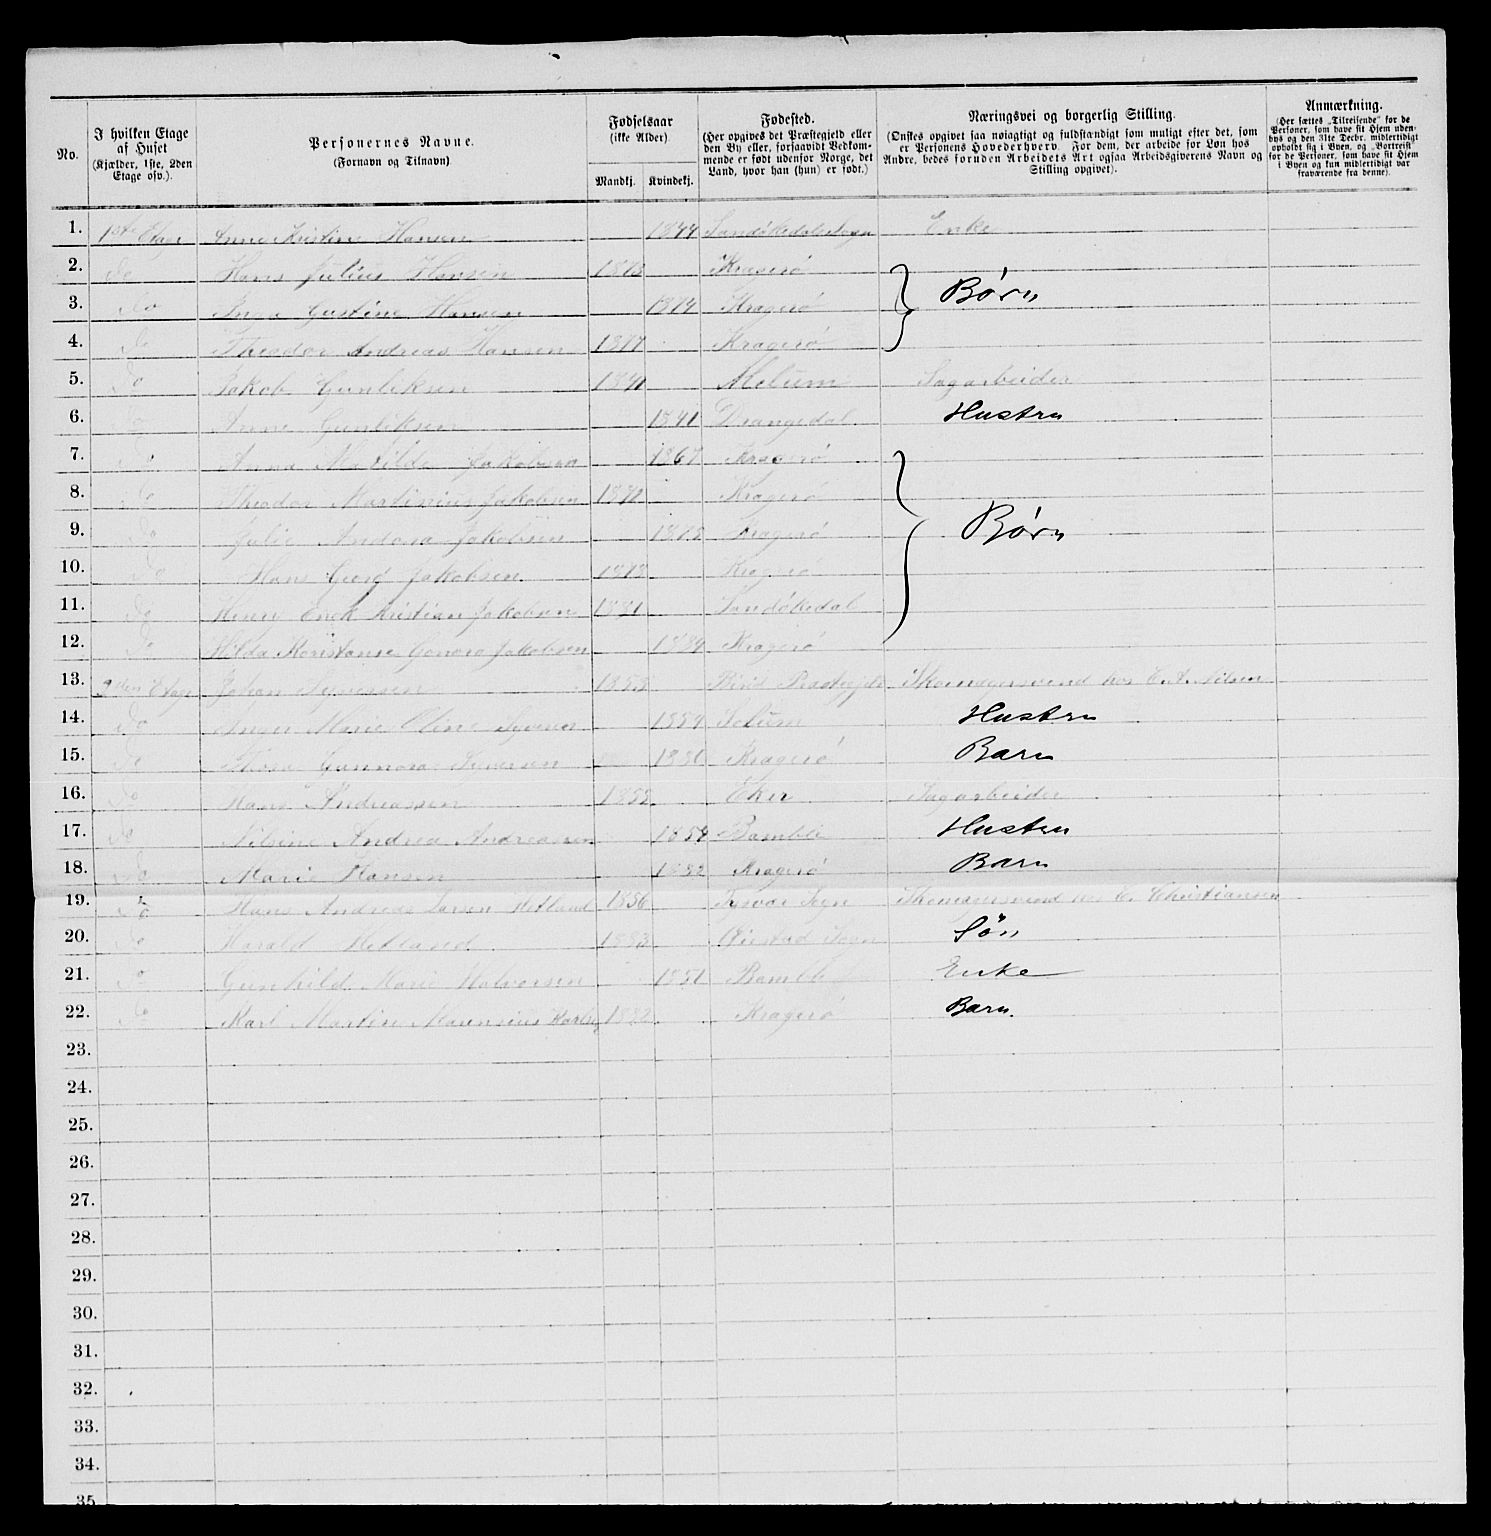 No.
I hvilken Etage af Huset (Kjælder, 1ste, 2den Etage osv.).
Personernes Navne. (Fornavn og Tilnavn)
Fødselsaar (ikke Alder)
Mandkj. Kvindekj.
Fødested. (Her opgives det Præstegjeld eller den By eller, forsaavidt Vedkommende er født udenfor Norge, det Land, hvor han (hun) er født.)
Næringsvei og borgerlig Stilling. (Ønskes opgivet saa nøiagtigt og fuldstændigt som muligt efter det, som er Personens Hovederhverv. For dem, der arbeide for Løn hos Andre, bedes foruden Arbeidets Art ogsaa Arbeidsgiverens Navn og Stilling opgivet).
Anmærkning. (Her sættes „Tilreisende“ for de Personer, som have sit Hjem udenbys og den 31te Decbr. midlertidigt opholdt sig i Byen, og „Bortreist“ for de Personer, som have sit Hjem i Byen og kun midlertidigt var fraværende fra denne).
1. 1ste Etage Anne Kristine Hansen 1844 Sandökedals Sogn Enke
2. Do Hans Julius Hansen 1873 Kragerö
3. Do Inga Gustine Hansen 1874 Kragerö Børn
4. Do Theodor Andreas Hansen 1877 Kragerö
5. Do Jakob Gunleksen Molum Sagarbeider
6. Do Anne Gunleksen 1841 Drangedal Hustru
7. Do Anna Matilde Jakobsen 1867 Kragerö
8. Do Theodor Martinius Jakobsen Kragerö
9. Do Julie Andora Jakobsen Kragerö Børn
10. Do Hans Georg Jakobsen 1878 Kragerö
11. Do Henry Enok Kristian Jakobsen 1881 Sandökedal
12. Do Hilda Konstanse Gonora Jakobsen 1884 Kragerö
13. 2den Etage Johan Syversen 1853 Skomagersvend hos C. A. Nilsen
14. Do Inger Marie Oline 1854 Solum Hustru
15. Do Gunnora Syversen 1880 Kragerö Barn
16. Do Hans Andreassen 1855 Eker Sagarbeider
17. Do Nilsine Andrea Andreassen 1854 Bamble Hustru
18. Do Marie Hansen 1882 Kragerö Barn
19. Do Hans Andreas Larsen Hetland 1856 Tysvær Sogn Skomagersvend hos C. Christiansen
20. Do Harald Hetland 1883 Øiestad Sogn Sön
21. Do Gunhild Marie Halvorsen 1851 Bamble Enke
22. Do Karl Martin Marensius Karlsen 1882 Kragerö Barn.
23.
24.
25.
26.
27.
28.
29.
30.
31.
32.
33.
34.
35